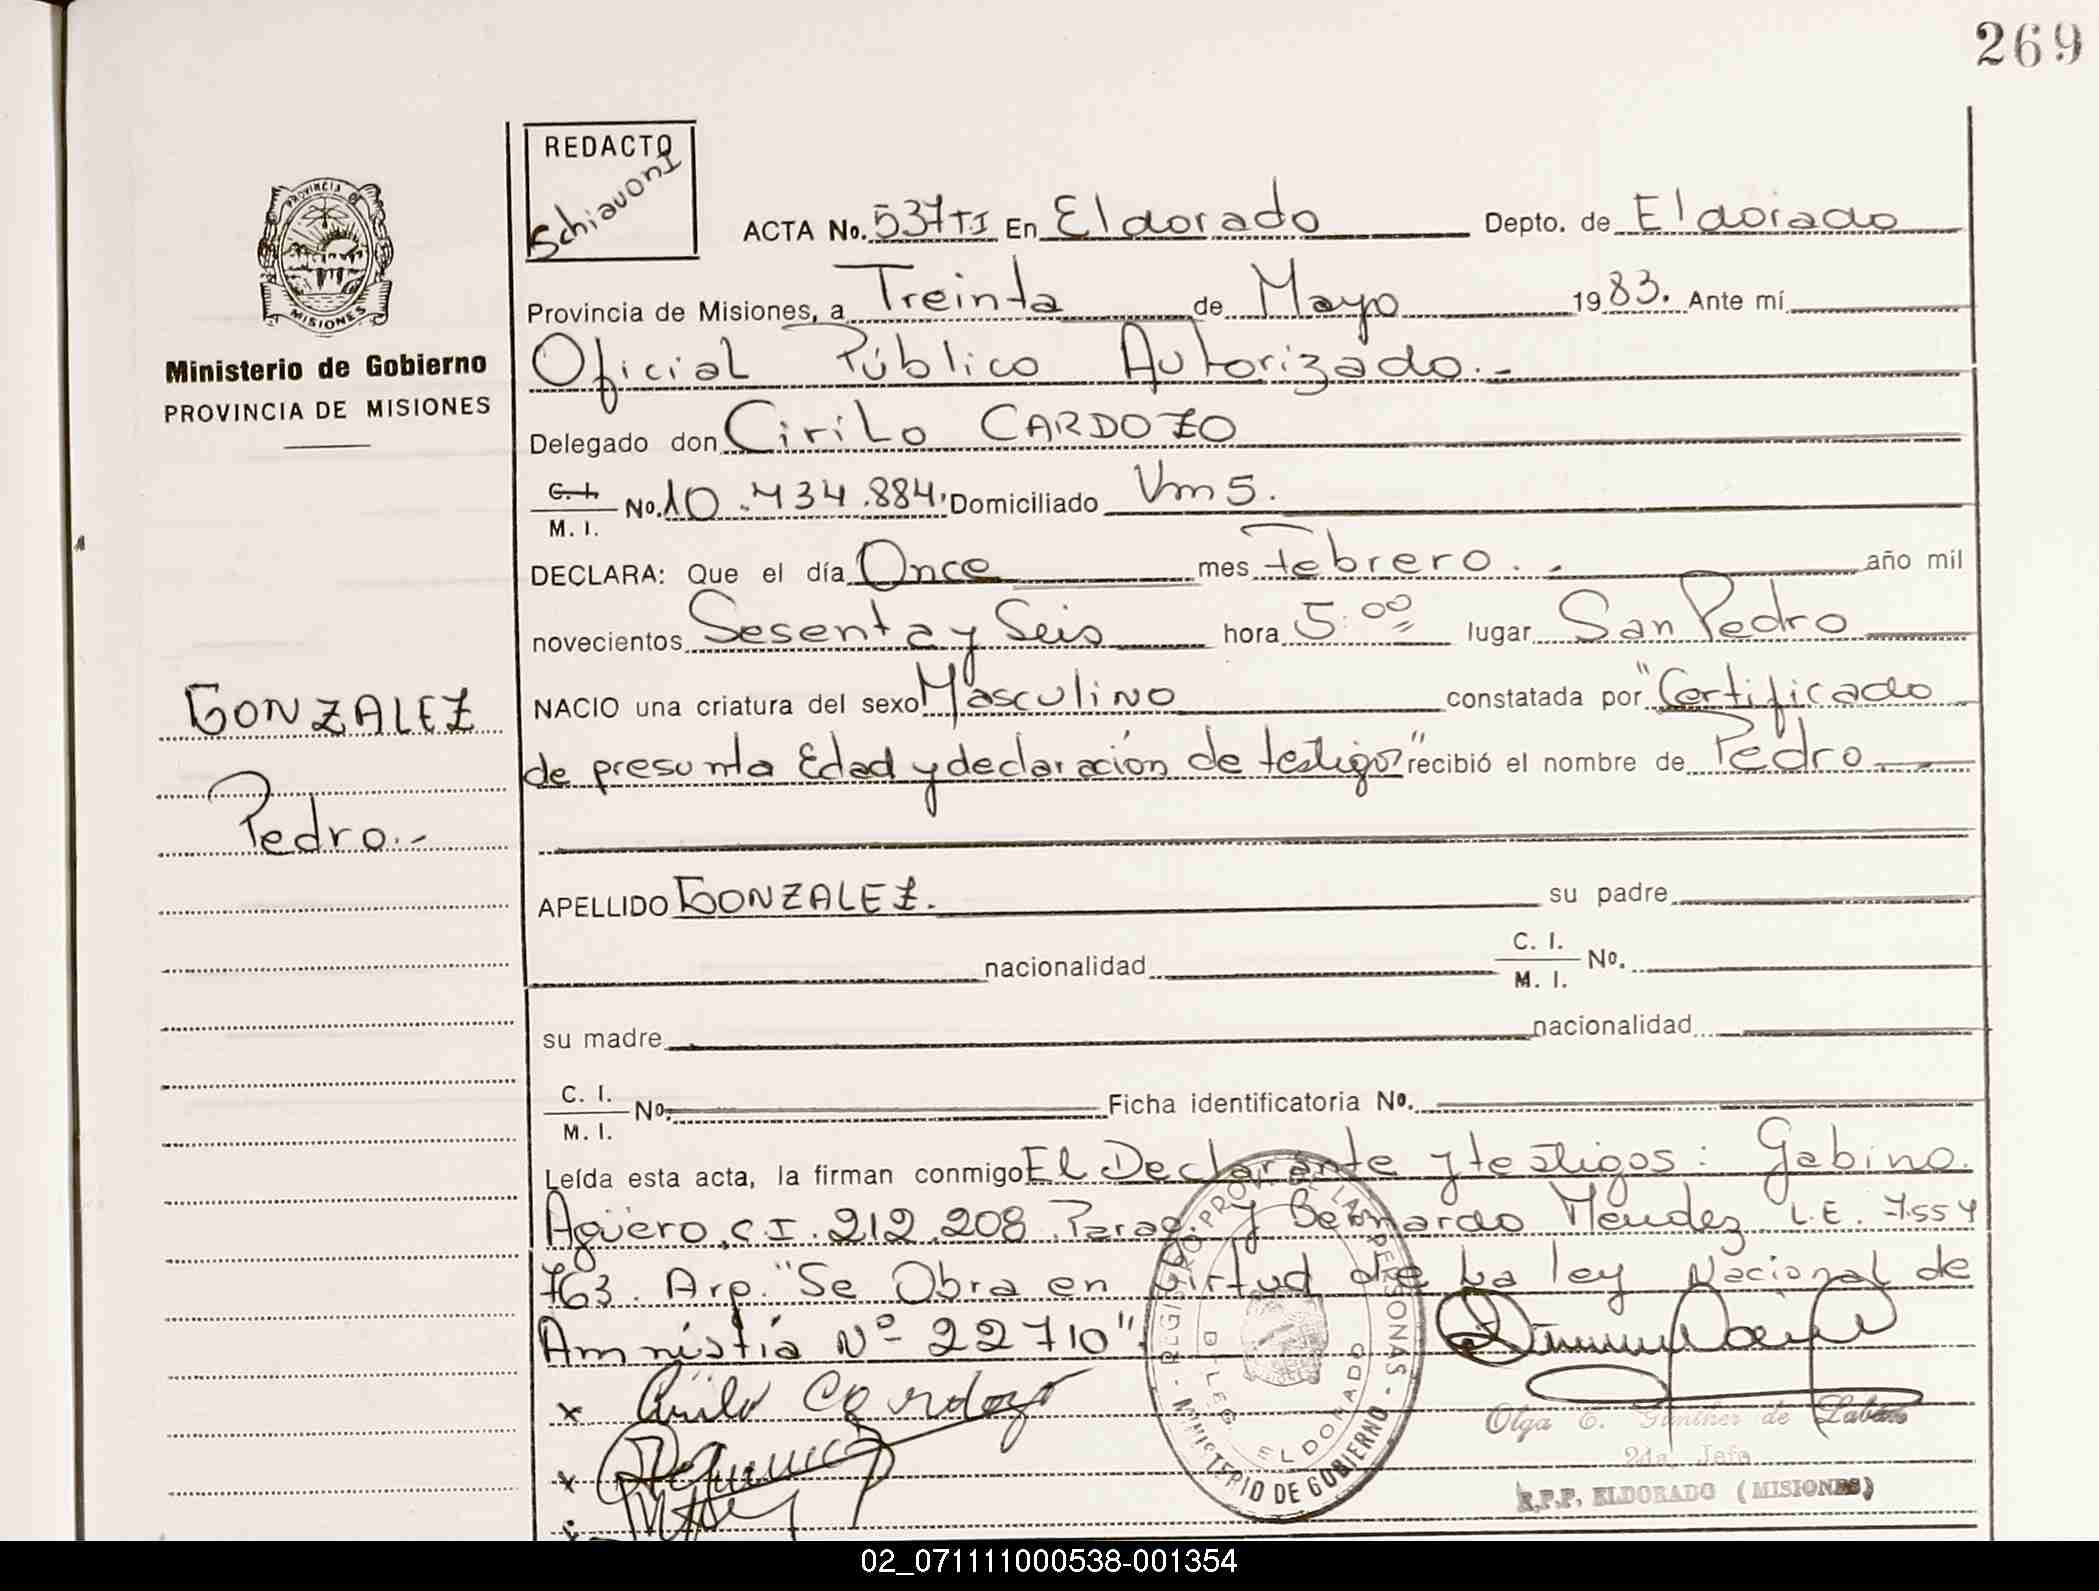 269
REDACTO
Schiavoni
PROVINCIA DE
MISIONES
Ministerio de Gobierno
PROVINCIA DE MISIONES
ACTA No. 537 TI En Eldorado Depto. de Eldorado
Provincia de Misiones, a Treinta de Mayo 1983. Ante mí
Oficial Público Autorizado.-
Delegado don Cirilo CARDOZO
C. I.
M. I. No. 10.434.884, Domiciliado Vm 5.
DECLARA: Que el día Once mes Febrero.- año mil
novecientos Sesenta y Seis hora 5:00 lugar San Pedro
NACIO una criatura del sexo Masculino constatada por "Certificado
de presunta Edad y declaración de testigo" recibió el nombre de Pedro
GONZALEZ
Pedro.-
APELLIDO GONZALEZ. su padre
nacionalidad C. I. M. I. No.
su madre nacionalidad
C. I. M. I. No. Ficha identificatoria No.
Leída esta acta, la firman conmigo El Declarante y testigos: Gabino
Agüero, C.I. 212.208 Parag. y Bernardo Mendez L.E. 7.554
763. Arg. "Se Obra en Virtud de La ley Nacional de
Amnistia Nº 22710".
x Cirilo Cardozo
x
REGISTRO PROV. DE LAS PERSONAS - MINISTERIO DE GOBIERNO -
DELEG. ELDORADO
Olga E. Günther de
2da. Jefe
R.P.P. ELDORADO (MISIONES)
02_071111000538-001354